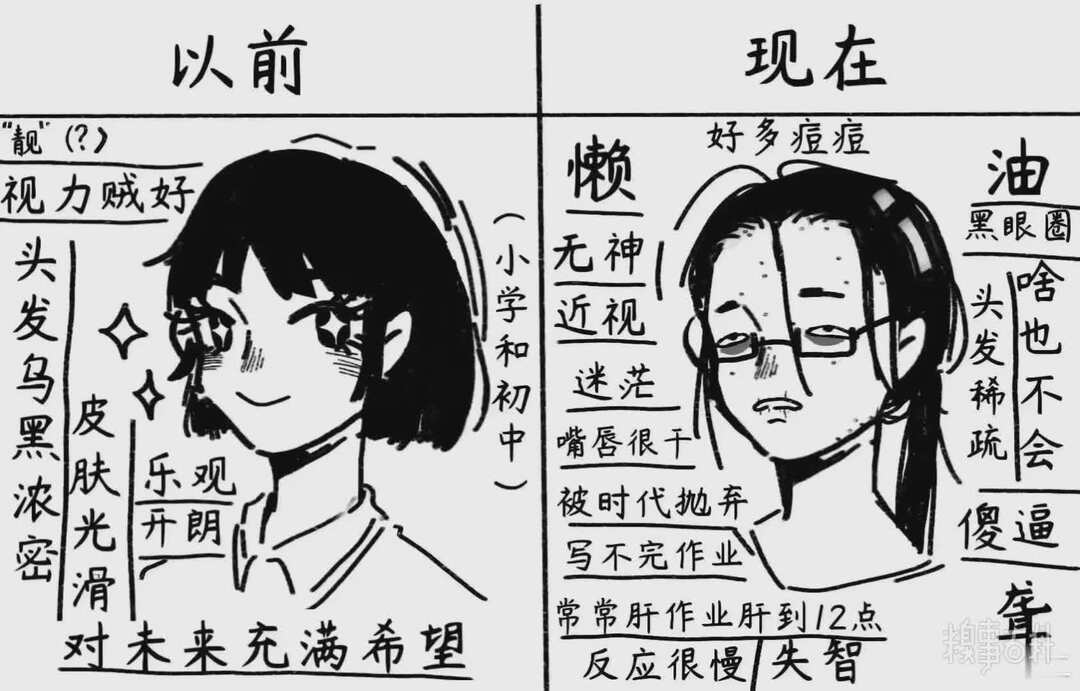 以前
"靓"(?)
视力贼好
头发乌黑浓密
皮肤光滑
乐观
开朗
(小学和初中)
对未来充满希望
现在
好多痘痘
懒
无神
近视
迷茫
嘴唇很干
被时代抛弃
写不完作业
常常肝作业肝到12点
反应很慢
失智
油
黑眼圈
头发稀疏
啥也不会
傻逼
聋
糗事百科